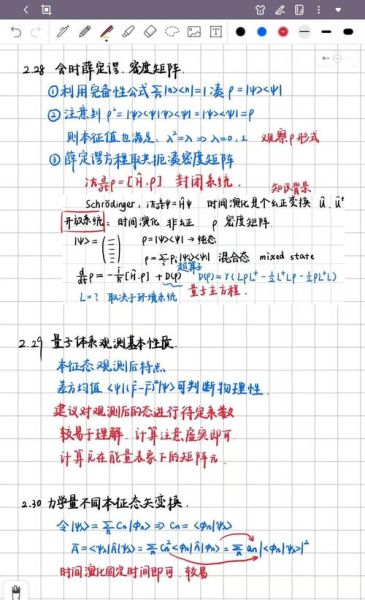 2.28 含时薛定谔.密度矩阵.
①利用完备性公式 Σ|n><n|=1 凑 ρ=|ψ><ψ|
②注意到 ρ²=|ψ><ψ|ψ><ψ|=|ψ><ψ|=ρ
则本征值也满足 λ²=λ ⇒ λ=0,1 观察ρ形式
③薛定谔方程取共轭凑密度矩阵
iℏ∂/∂t ρ=[Ĥ,ρ] 封闭系统.
知识背景
Schrödinger: iℏ∂/∂t ψ=Ĥψ 时间演化是个幺正变换 û.û⁺
开放系统: 时间演化 非幺正 ρ 密度矩阵.
|ψ>= ρ=|ψ><ψ| → 纯态
ρ=Σpᵢ|ψᵢ><ψᵢ| 混合态 mixed state
超算子
ρ=-i/ℏ[Ĥ,ρ]+D(ρ) D(ρ)=γ(LρL⁺-½L⁺Lρ-½ρL⁺L)
L=? 取决于环境系统 量子主方程.
2.29 量子体系观测基本性质.
本征态观测后特点
差方均值 <ψ|(F̂-F̄)²|ψ>可判断物理性.
建议对观测后的态进行待定系数
较易于理解.计算注意虚实即可
计算见在能量表象下的矩阵元.
2.30 力学量不同本征态矢变换.
令|ψ>=Σ Cn|φn> ⇒ Cn=<φn|ψ>
Ā=<ψ|Â|ψ>=Σ Cn²<φn|Â|φn>=Σ an|<φn|ψ>|²
时间演化固定时间即可.较易